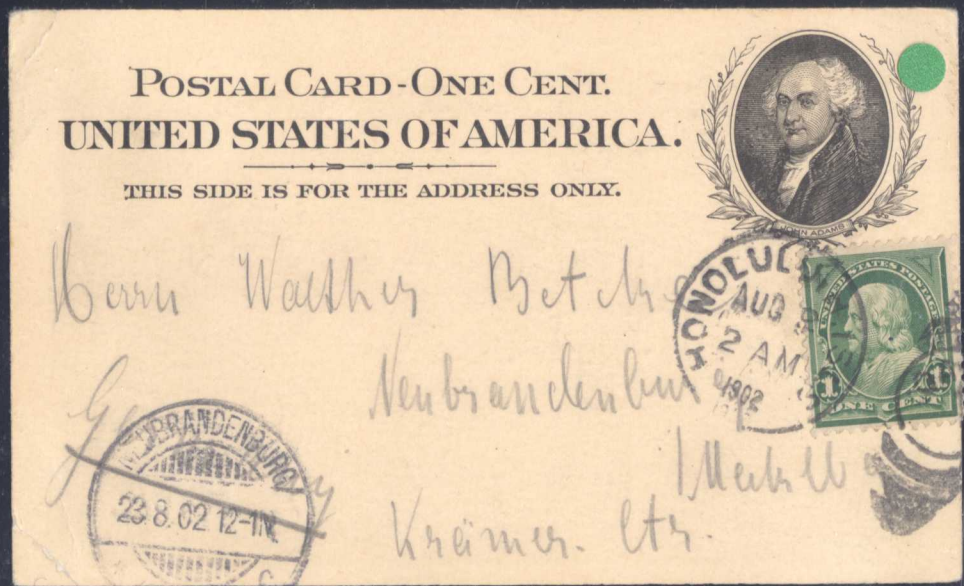 POSTAL CARD - ONE CENT.
UNITED STATES OF AMERICA.
THIS SIDE IS FOR THE ADDRESS ONLY.
JOHN ADAMS
HONOLULU
AUG
2 AM
1902
UNITED STATES POSTAGE
1 1
ONE CENT
Herrn Walther
Neubrandenburg
Germany
NEUBRANDENBURG
23.8.02 12-1N
Meckl
Krämer. Str.